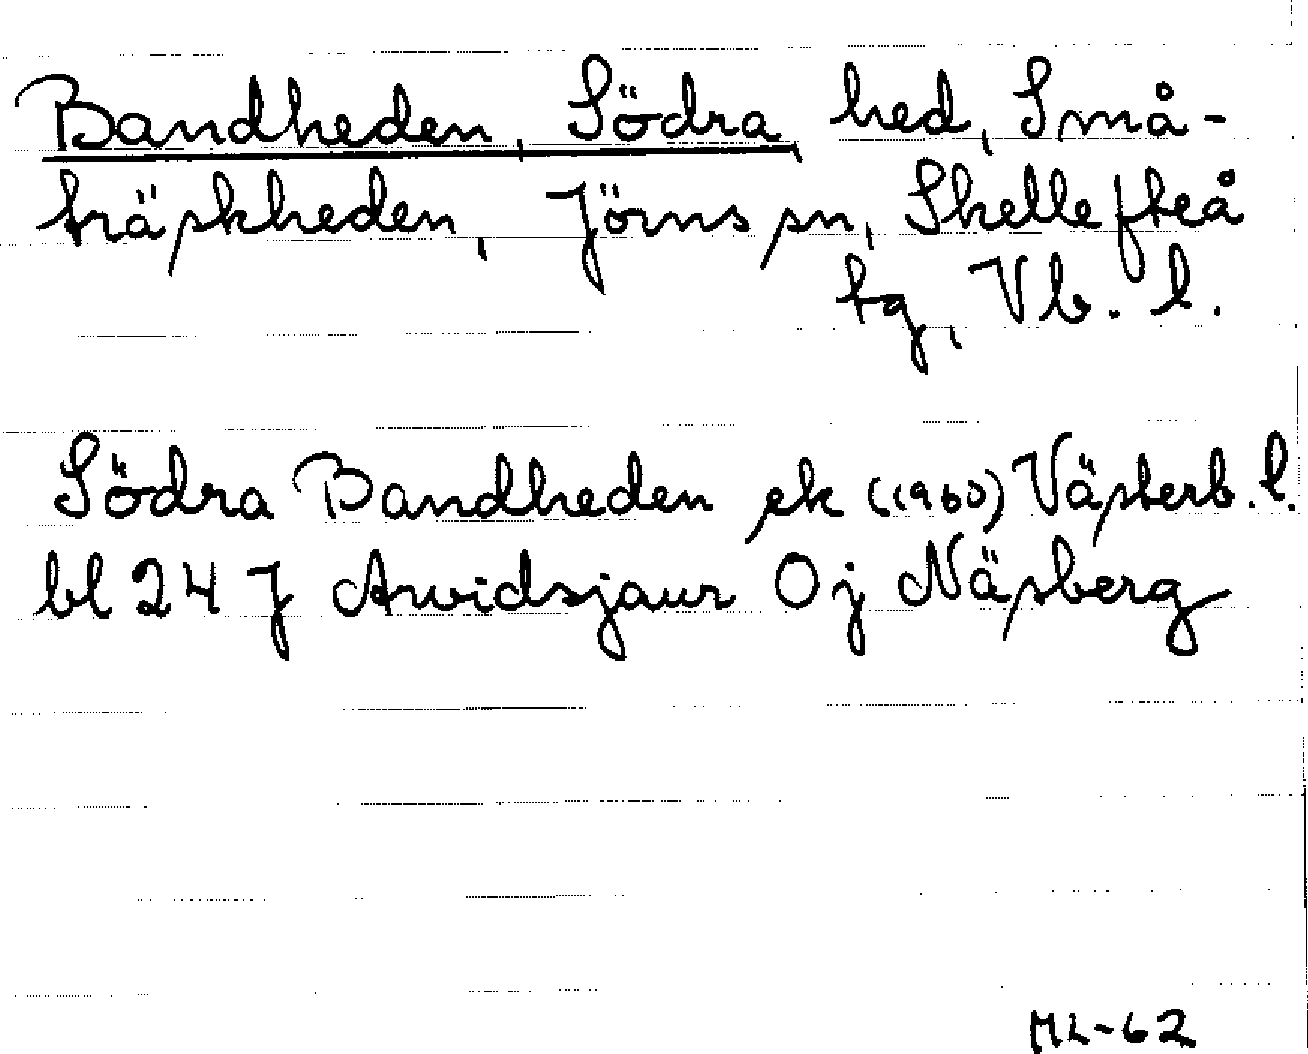 Bandheden, Södra, hed, Små-
träskheden, Jörns sn, Skellefteå
tg, Vb. l.
Södra Bandheden ek (1960) Västerb. l.
bl 24 J Arvidsjaur Oj Näsberg
ML-62